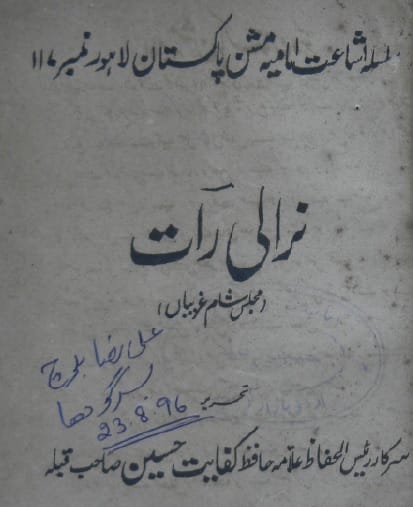 سلسلہ اشاعت امامیہ مشن پاکستان لاہور نمبر ۱۱۷
نرالی رات
(مجلس شام غریباں)
علی رضا بلوچ
سرگودھا
23.8.96
تحریر
سرکار رئیس الحفاظ علامہ حافظ کفایت حسین صاحب قبلہ